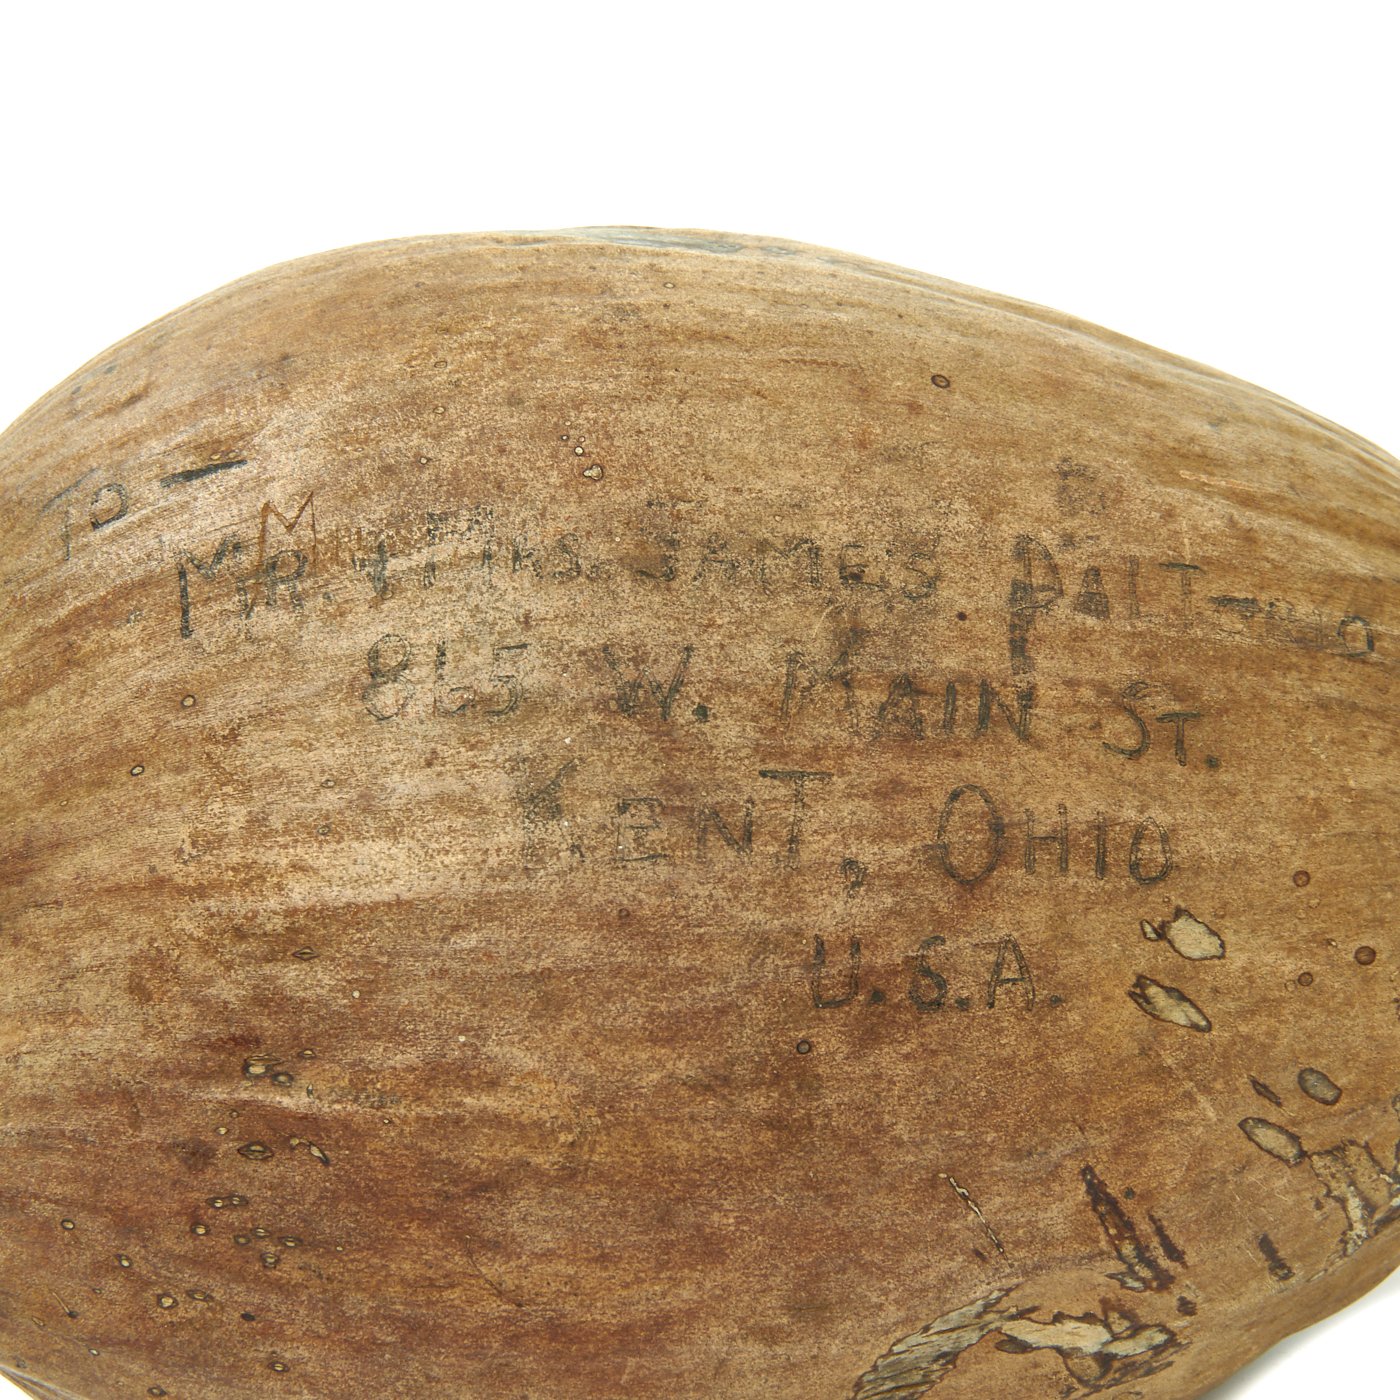 TO —
MR. & MRS. JAMES
865 W. MAIN ST.
KENT, OHIO
U.S.A.